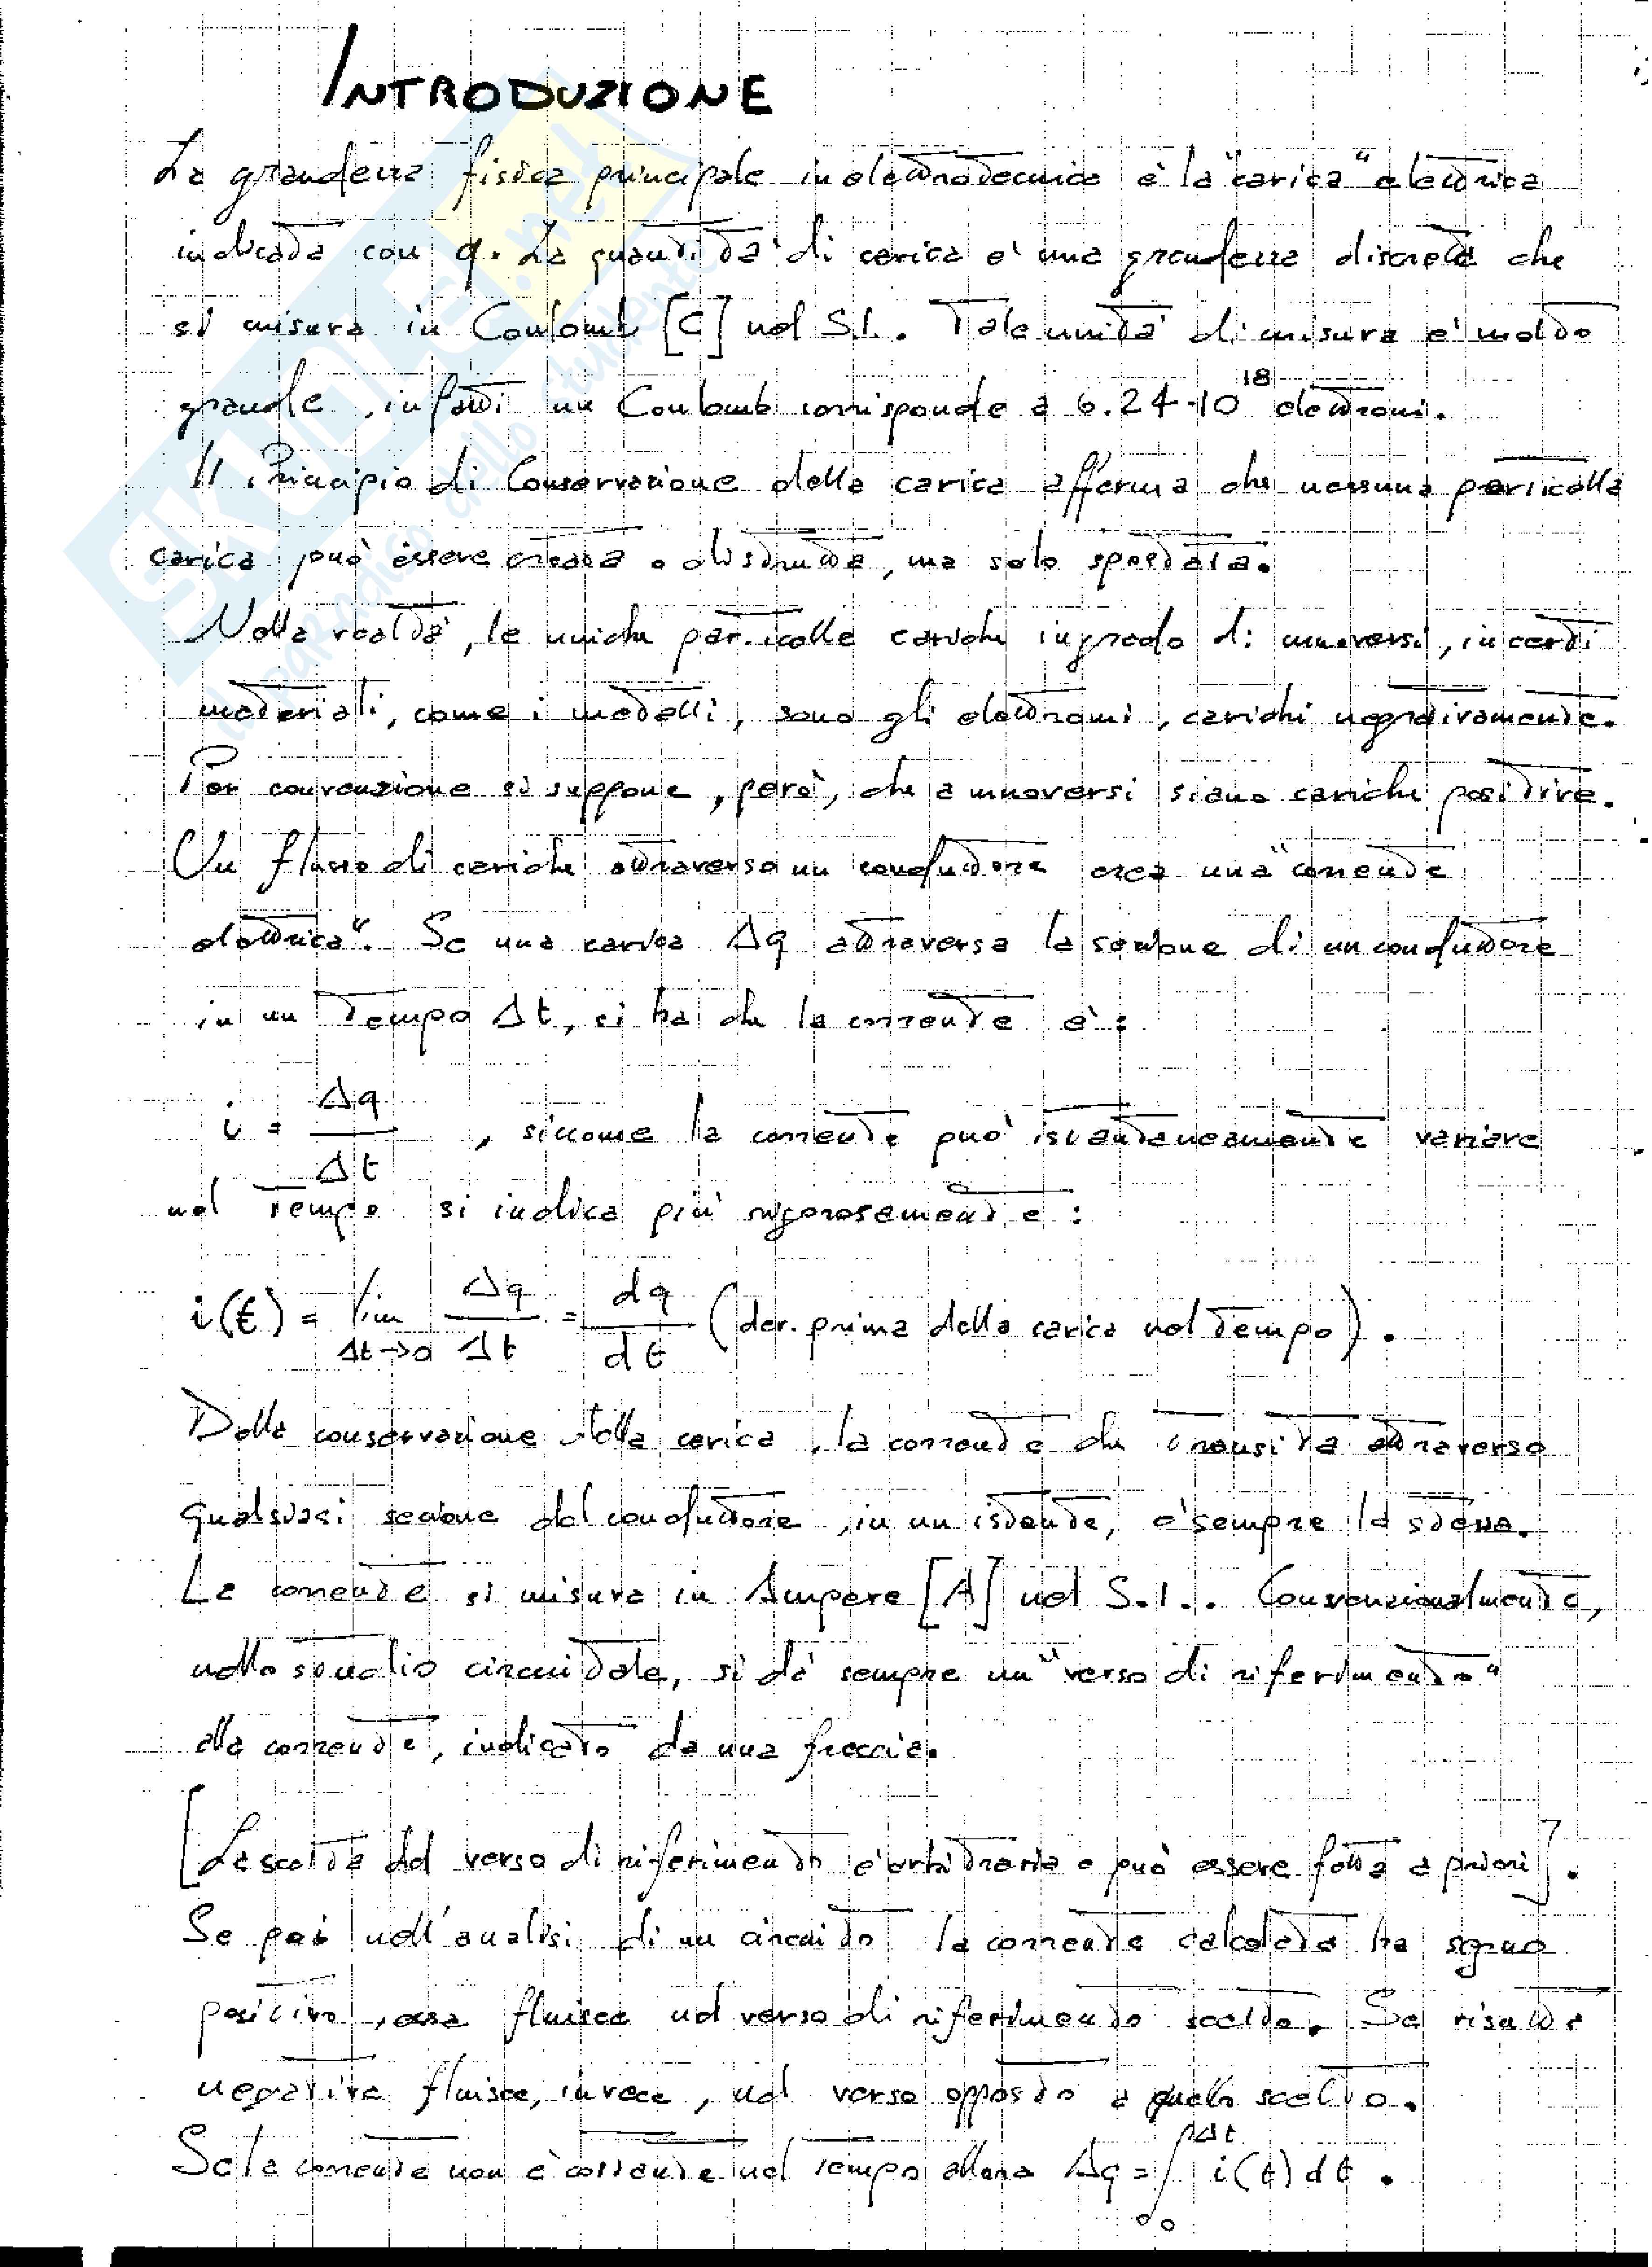 INTRODUZIONE
La grandezza fisica principale in elettrotecnica è la "carica" elettrica
indicata con q. La quantità di carica è una grandezza discreta che
si misura in Coulomb [C] nel S.I.. Tale unità di misura è molto
grande, infatti un Coulomb corrisponde a 6.24·10^18 elettroni.
Il Principio di Conservazione della carica afferma che nessuna particella
carica può essere creata o distrutta, ma solo spostata.
Nella realtà, le uniche particelle cariche in grado di muoversi, in certi
materiali, come i metalli, sono gli elettroni, carichi negativamente.
Per convenzione si suppone, però, che a muoversi siano cariche positive.
Un flusso di cariche attraverso un conduttore crea una "corrente
elettrica". Se una carica Δq attraversa la sezione di un conduttore
in un tempo Δt, si ha che la corrente è:
i = Δq/Δt, siccome la corrente può istantaneamente variare
nel tempo si indica più rigorosamente:
i(t) = lim Δt→0 Δq/Δt = dq/dt (der. prima della carica nel tempo).
Dalla conservazione della carica, la corrente che transita attraverso
qualsiasi sezione del conduttore, in un istante, è sempre la stessa.
La corrente si misura in Ampere [A] nel S.I.. Convenzionalmente,
nello studio circuitale, si dà sempre un "verso di riferimento"
alla corrente, indicato da una freccia.
[La scelta del verso di riferimento è arbitraria e può essere fatta a priori].
Se poi nell'analisi di un circuito la corrente calcolata ha segno
positivo, essa fluisce nel verso di riferimento scelto. Se risulta
negativa fluisce, invece, nel verso opposto a quello scelto.
Se la corrente non è costante nel tempo allora Δq = ∫₀^Δt i(t) dt.
SKUOLA.net
il paradiso dello studente